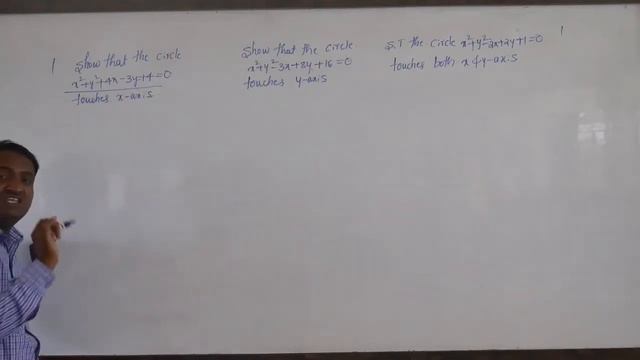 1 Show that the circle
x²+y²+4x-3y+4=0
touches x-axis
Show that the circle
x²+y²-3x+8y+16=0
touches y-axis
S.T the circle x²+y²-2x+2y+1=0
touches both x & y-axis
1